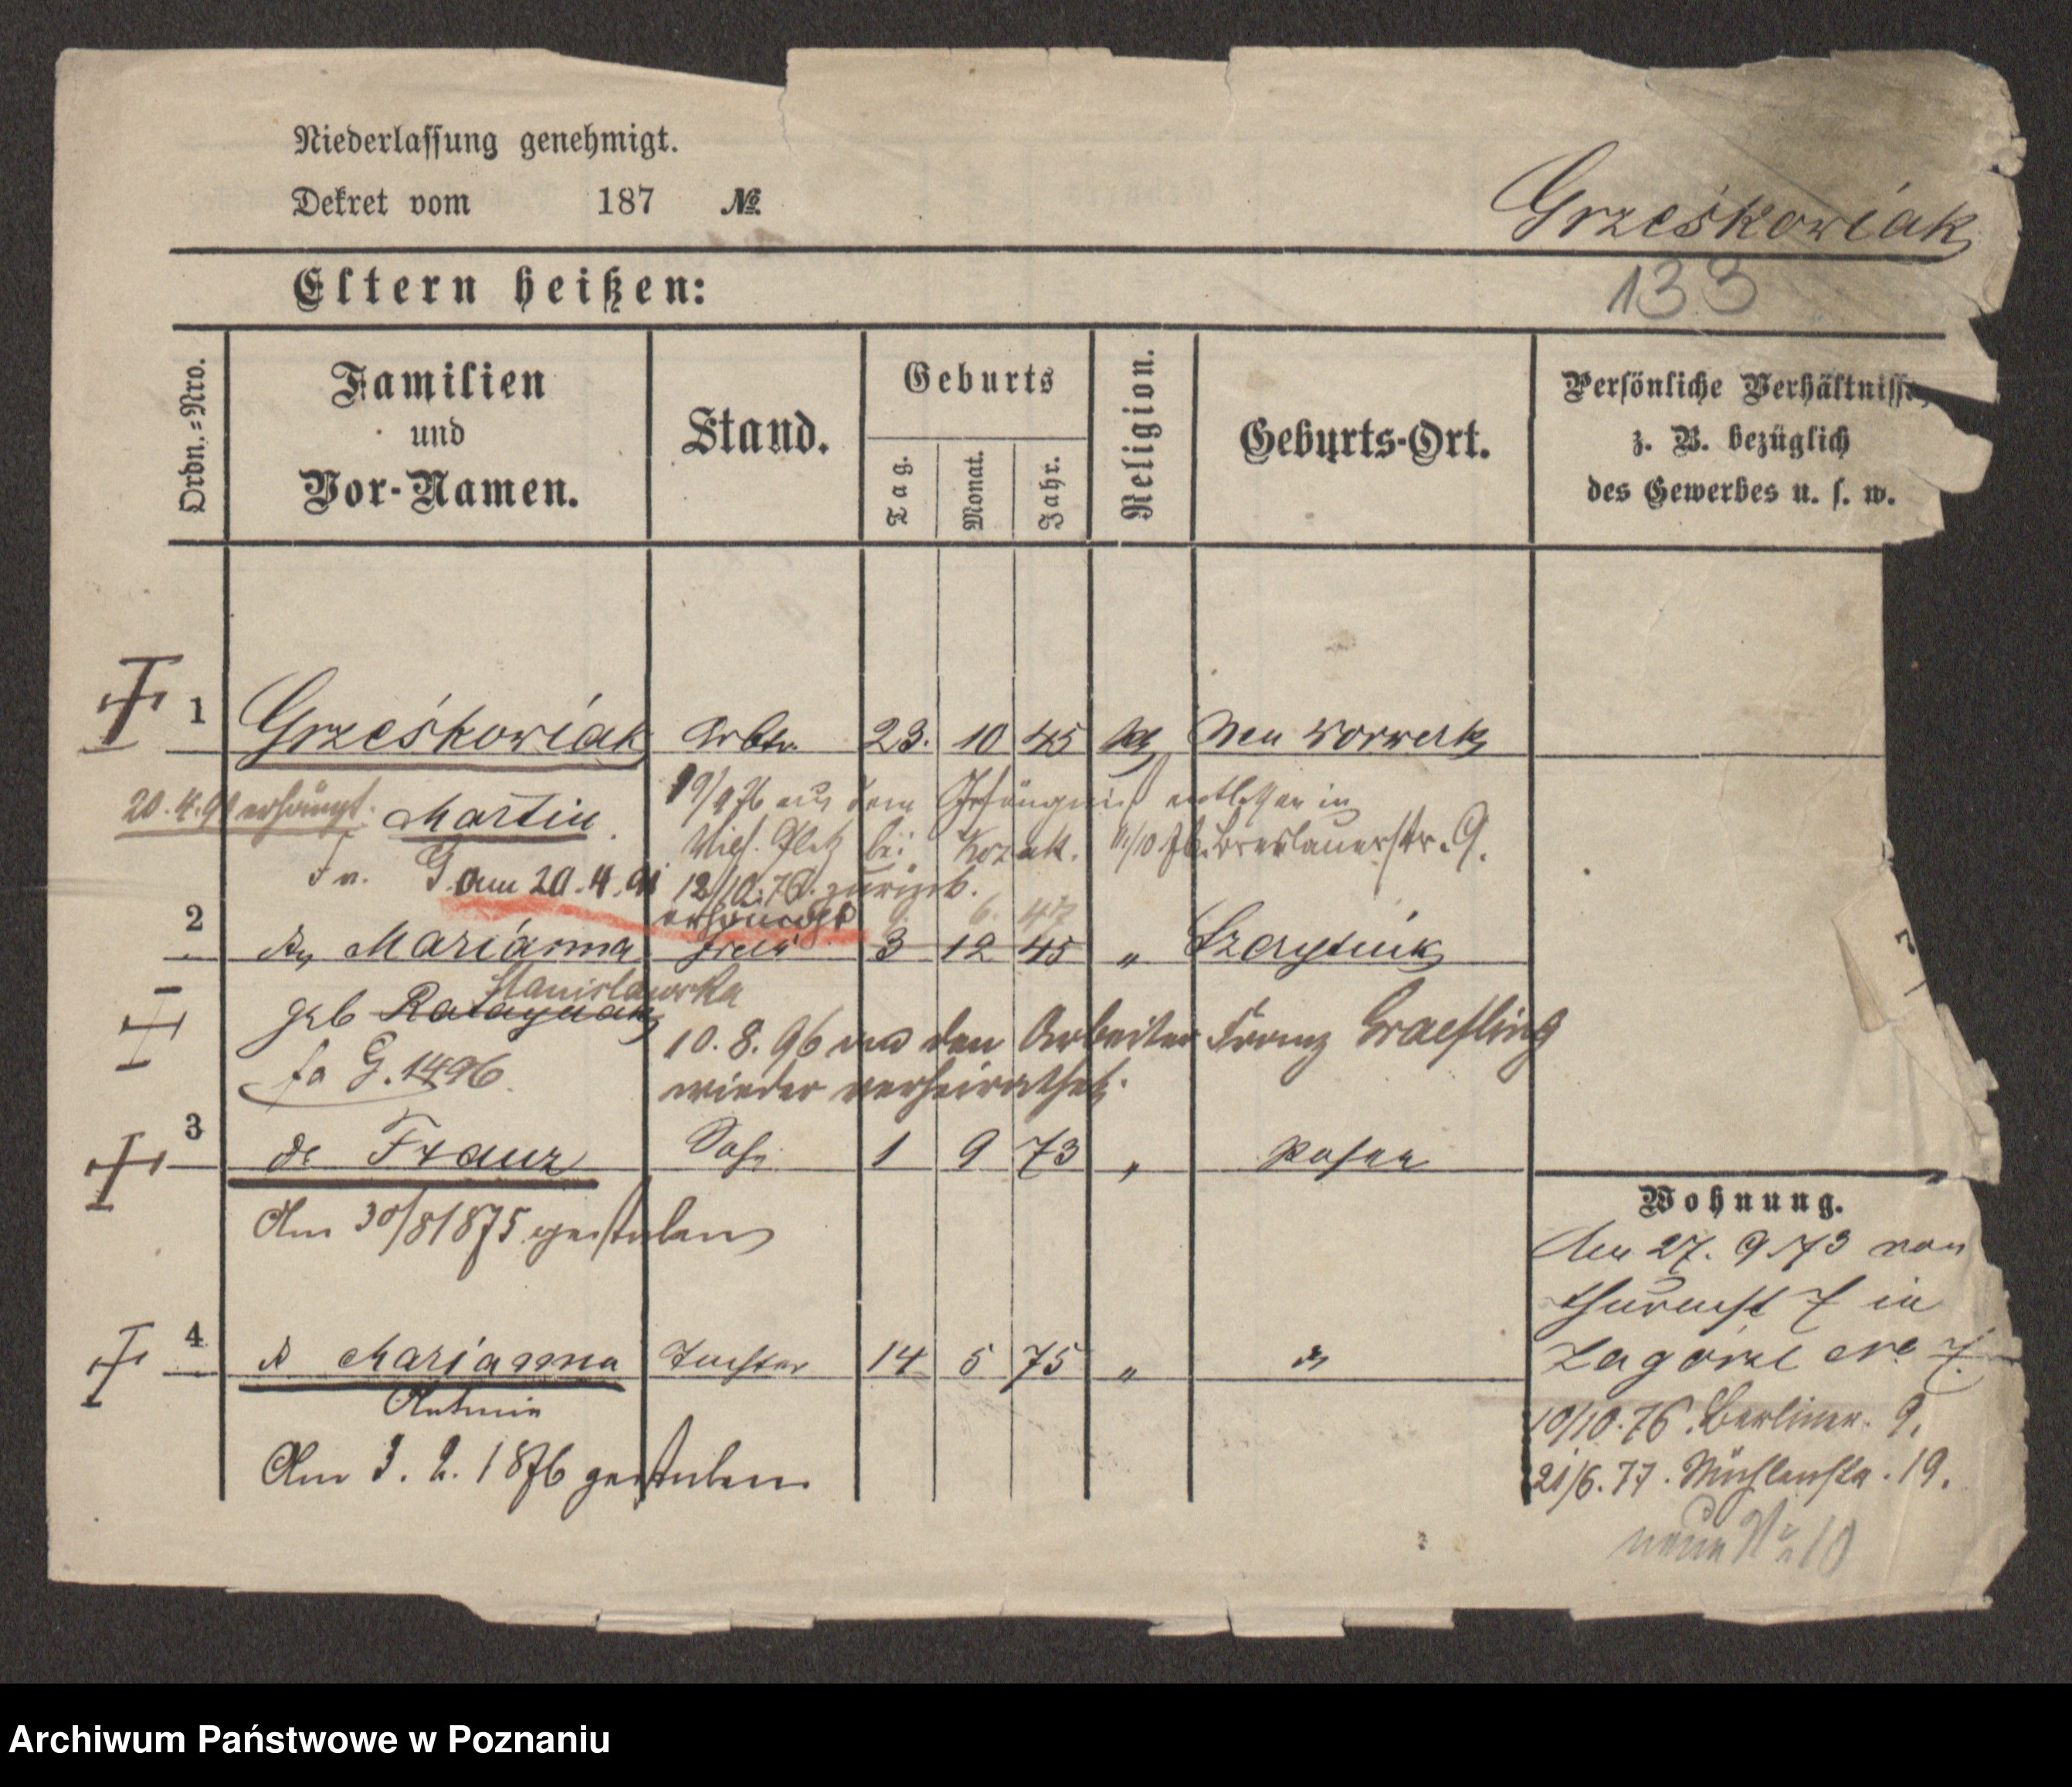 Niederlassung genehmigt.
Dekret vom 187 №
Grześkowiak
133
Eltern heißen:
Ordn.=Nro.
Familien
und
Vor-Namen.
Stand.
Geburts
Tag.
Monat.
Jahr.
Religion.
Geburts-Ort.
Persönliche Verhältnisse,
z. B. bezüglich
des Gewerbes u. s. w.
1 Grześkowiak Arbtr. 23. 10 45 kt Neu Vorwerk
20.4.91 erhängt. Martin.
19/9 76 aus dem Gefängniß entlassen in
Platz bei Kozak. 11/10 76. Breslauerstr. 9.
12/10. 76. zurück.
am 20.4.91
erhängt
9. 6. 47
2 Marianna Frau 3 12 45 " 
Stanislawska
geb Ratayczak
fa G. 1496
10. 8. 96 den Arbeiter Franz
wieder verheirathet.
3 do Franz Sohn 1 9 73 " Posen
Am 30/8 1875 gestorben
4 Marianna Tochter 14 5 75 " do
Antonie
Am 3. 2. 1876 gestorben
Wohnung.
Am 27. 9 73 von
7 in
Zagórze No 7.
10/10. 76. Berliner. 9.
21/6. 77. Mühlenstr. 19.
neue No 10
Archiwum Państwowe w Poznaniu